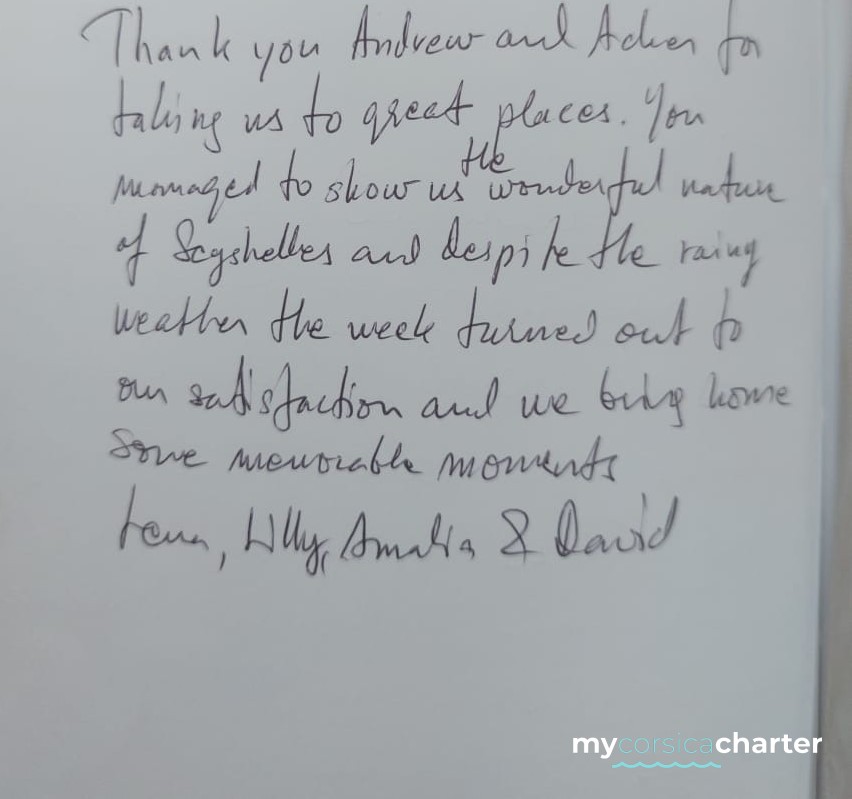 Thank you Andrew and for
taking us to great places. You
managed to show us the wonderful nature
of Seyshelles and despite the rainy
weather the week turned out to
our satisfaction and we bring home
some memorable moments
Lena, Lilly, Amalia & David
mycorsicacharter